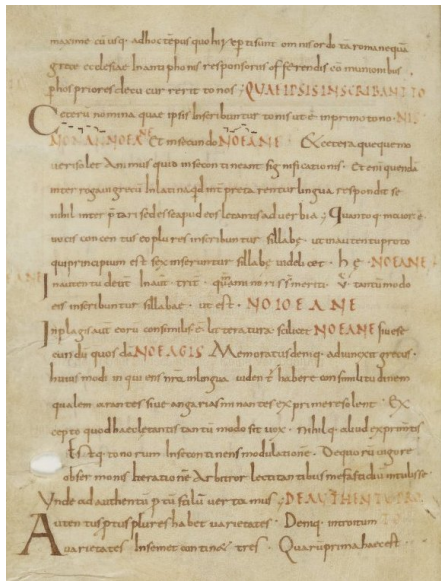 maxime cū usq. adhoc tēpus quo hi rep tisunt om nis ordo tā romanequā
grece ecclesiae Inantiphonis responsoriis offerendis cōmunionibus
phos priores decu cur rerit tonos ; QUAE IPSIS INSCRIBANT
Ceterū nomina quae ipsis Inscribuntur tonis ut ē Inprimo tono.
NONANNOEANE Et Insecundo NOEANE Ex cetera quequemo
ueri solet Animus quid Insecontineant significationis. Et eni quendā
inter rogaui grecū Inlatina qd Interpretarentur lingua respondit se
nihil inter p̄tari sed esse apud eos letantis aduerbia ; Quantoq. maior ē
uocis concentus coplures inscribuntur sillabę. ut Inautentuproto
qui principium est sex inseruntur sillabę uidelicet . hę . NOEANE
Inautentu deut Inaut. trit. quinoris sim̄ter iti . v̄ tantūmodo
eis inscribuntur sillabae . ut est . NOIOEANE
Inplagis aut eorū consimilis ē litteratura. scilicet NOEANE siue se
cundū quosdā NOEAGIS Memoratus deniq. adiunxit grecus .
huius modi in qui ens nrā Inlongua uidentr̄ habere consimilitudinem
qualem arantes siue angarias minantes exprimere solent . Ex
cepto quod haec letantis tantū modo sit uox . nihilq. aliud exprimentis
Estq. tonorum Insecontinens modulationē . De quorū uigore
ob sermonis Iterationē Arbitror lectitantibusme fastidiū intulisse
Unde ad authentū p̄tū stilū uertamus ; DE AUTHENTU PRO
Autentus p̄tus plures habet uarietates . Deniq. introitum
uarietates Insemet continet tres . Quarū prima haec est .